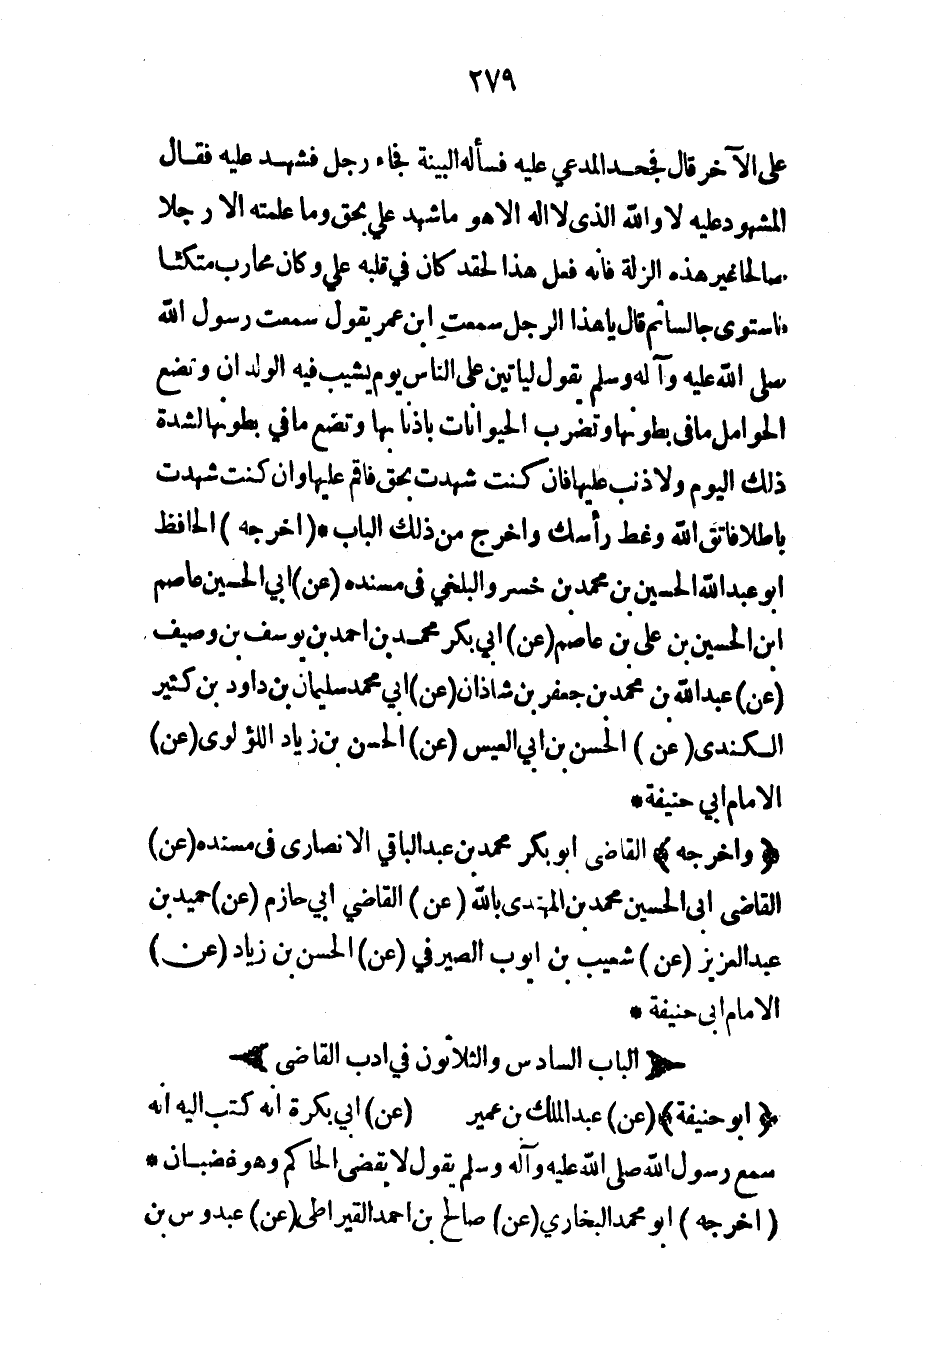 ٢٧٩
على الآخر قال فجحد المدعي عليه فسأله البينة فجاء رجل فشهد عليه فقال
المشهود عليه لا والله الذى لا اله الا هو ما شهد علي بحق وما علمته الا رجلا
صالحا غير هذه الزلة فانه فعل هذا لحقد كان في قلبه علي وكان محارب متكئا
فاستوى جالسا ثم قال يا هذا الرجل سمعت ابن عمر يقول سمعت رسول الله
صلى الله عليه وآله وسلم يقول لياتين على الناس يوم يشيب فيه الولدان وتضع
الحوامل مافى بطونها وتضرب الحيوانات باذنابها وتضع مافي بطونها لشدة
ذلك اليوم ولا ذنب عليها فان كنت شهدت بحق فاقم عليها وان كنت شهدت
باطلا فاتق الله وغط رأسك واخرج من ذلك الباب * ( اخرجه ) الحافظ
ابو عبدالله الحسين بن محمد بن خسرو البلخي فى مسنده (عن) ابي الحسين عاصم
ابن الحسين بن على بن عاصم (عن) ابي بكر محمد بن احمد بن يوسف بن وصيف
(عن) عبدالله بن محمد بن جعفر بن شاذان (عن) ابي محمد سليمان بن داود بن كثير
الكندى (عن) الحسن بن ابي العيس (عن) الحسن بن زياد اللؤلوى (عن)
الامام ابي حنيفة *
﴿ واخرجه ﴾ القاضى ابو بكر محمد بن عبدالباقي الانصارى فى مسنده (عن)
القاضى ابى الحسين محمد بن المهتدى بالله (عن) القاضي ابي حازم (عن) حميد بن
عبدالعزيز (عن) شعيب بن ايوب الصيرفي (عن) الحسن بن زياد (عن)
الامام ابى حنيفة *
﴿ الباب السادس والثلاثون في ادب القاضى ﴾
﴿ ابو حنيفة ﴾ (عن) عبدالملك بن عمير (عن) ابي بكرة انه كتب اليه انه
سمع رسول الله صلى الله عليه وآله وسلم يقول لا يقضى الحاكم وهو غضبان *
( اخرجه ) ابو محمد البخاري (عن) صالح بن احمد القيراطى (عن) عبدوس بن